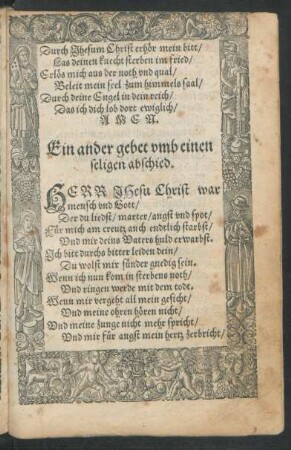 Durch Jhesum Christ erhör mein bitt/
Las deinen knecht sterben im fried/
Erlös mich aus der noth vnd qual/
Beleit mein seel zum himmels saal/
Durch deine Engel in dein reich/
Das ich dich lob dort ewiglich/
AMEN.
Ein ander gebet vmb einen
seligen abschied.
HERR JHesu Christ war
mensch vnd Gott/
Der du liedst/ marter/ angst vnd spot/
Für mich am creutz auch endtlich starbst/
Vnd mir deins Vaters huld erwarbst.
Ich bitt durchs bitter leiden dein/
Du wolst mir sünder gnedig sein.
Wenn ich nun kom in sterbens noth/
Vnd ringen werde mit dem todt.
Wenn mir vergeht all mein gesicht/
Vnd meine ohren hören nicht/
Vnd meine zunge nicht mehr spricht/
Vnd mir für angst mein hertz zerbricht/